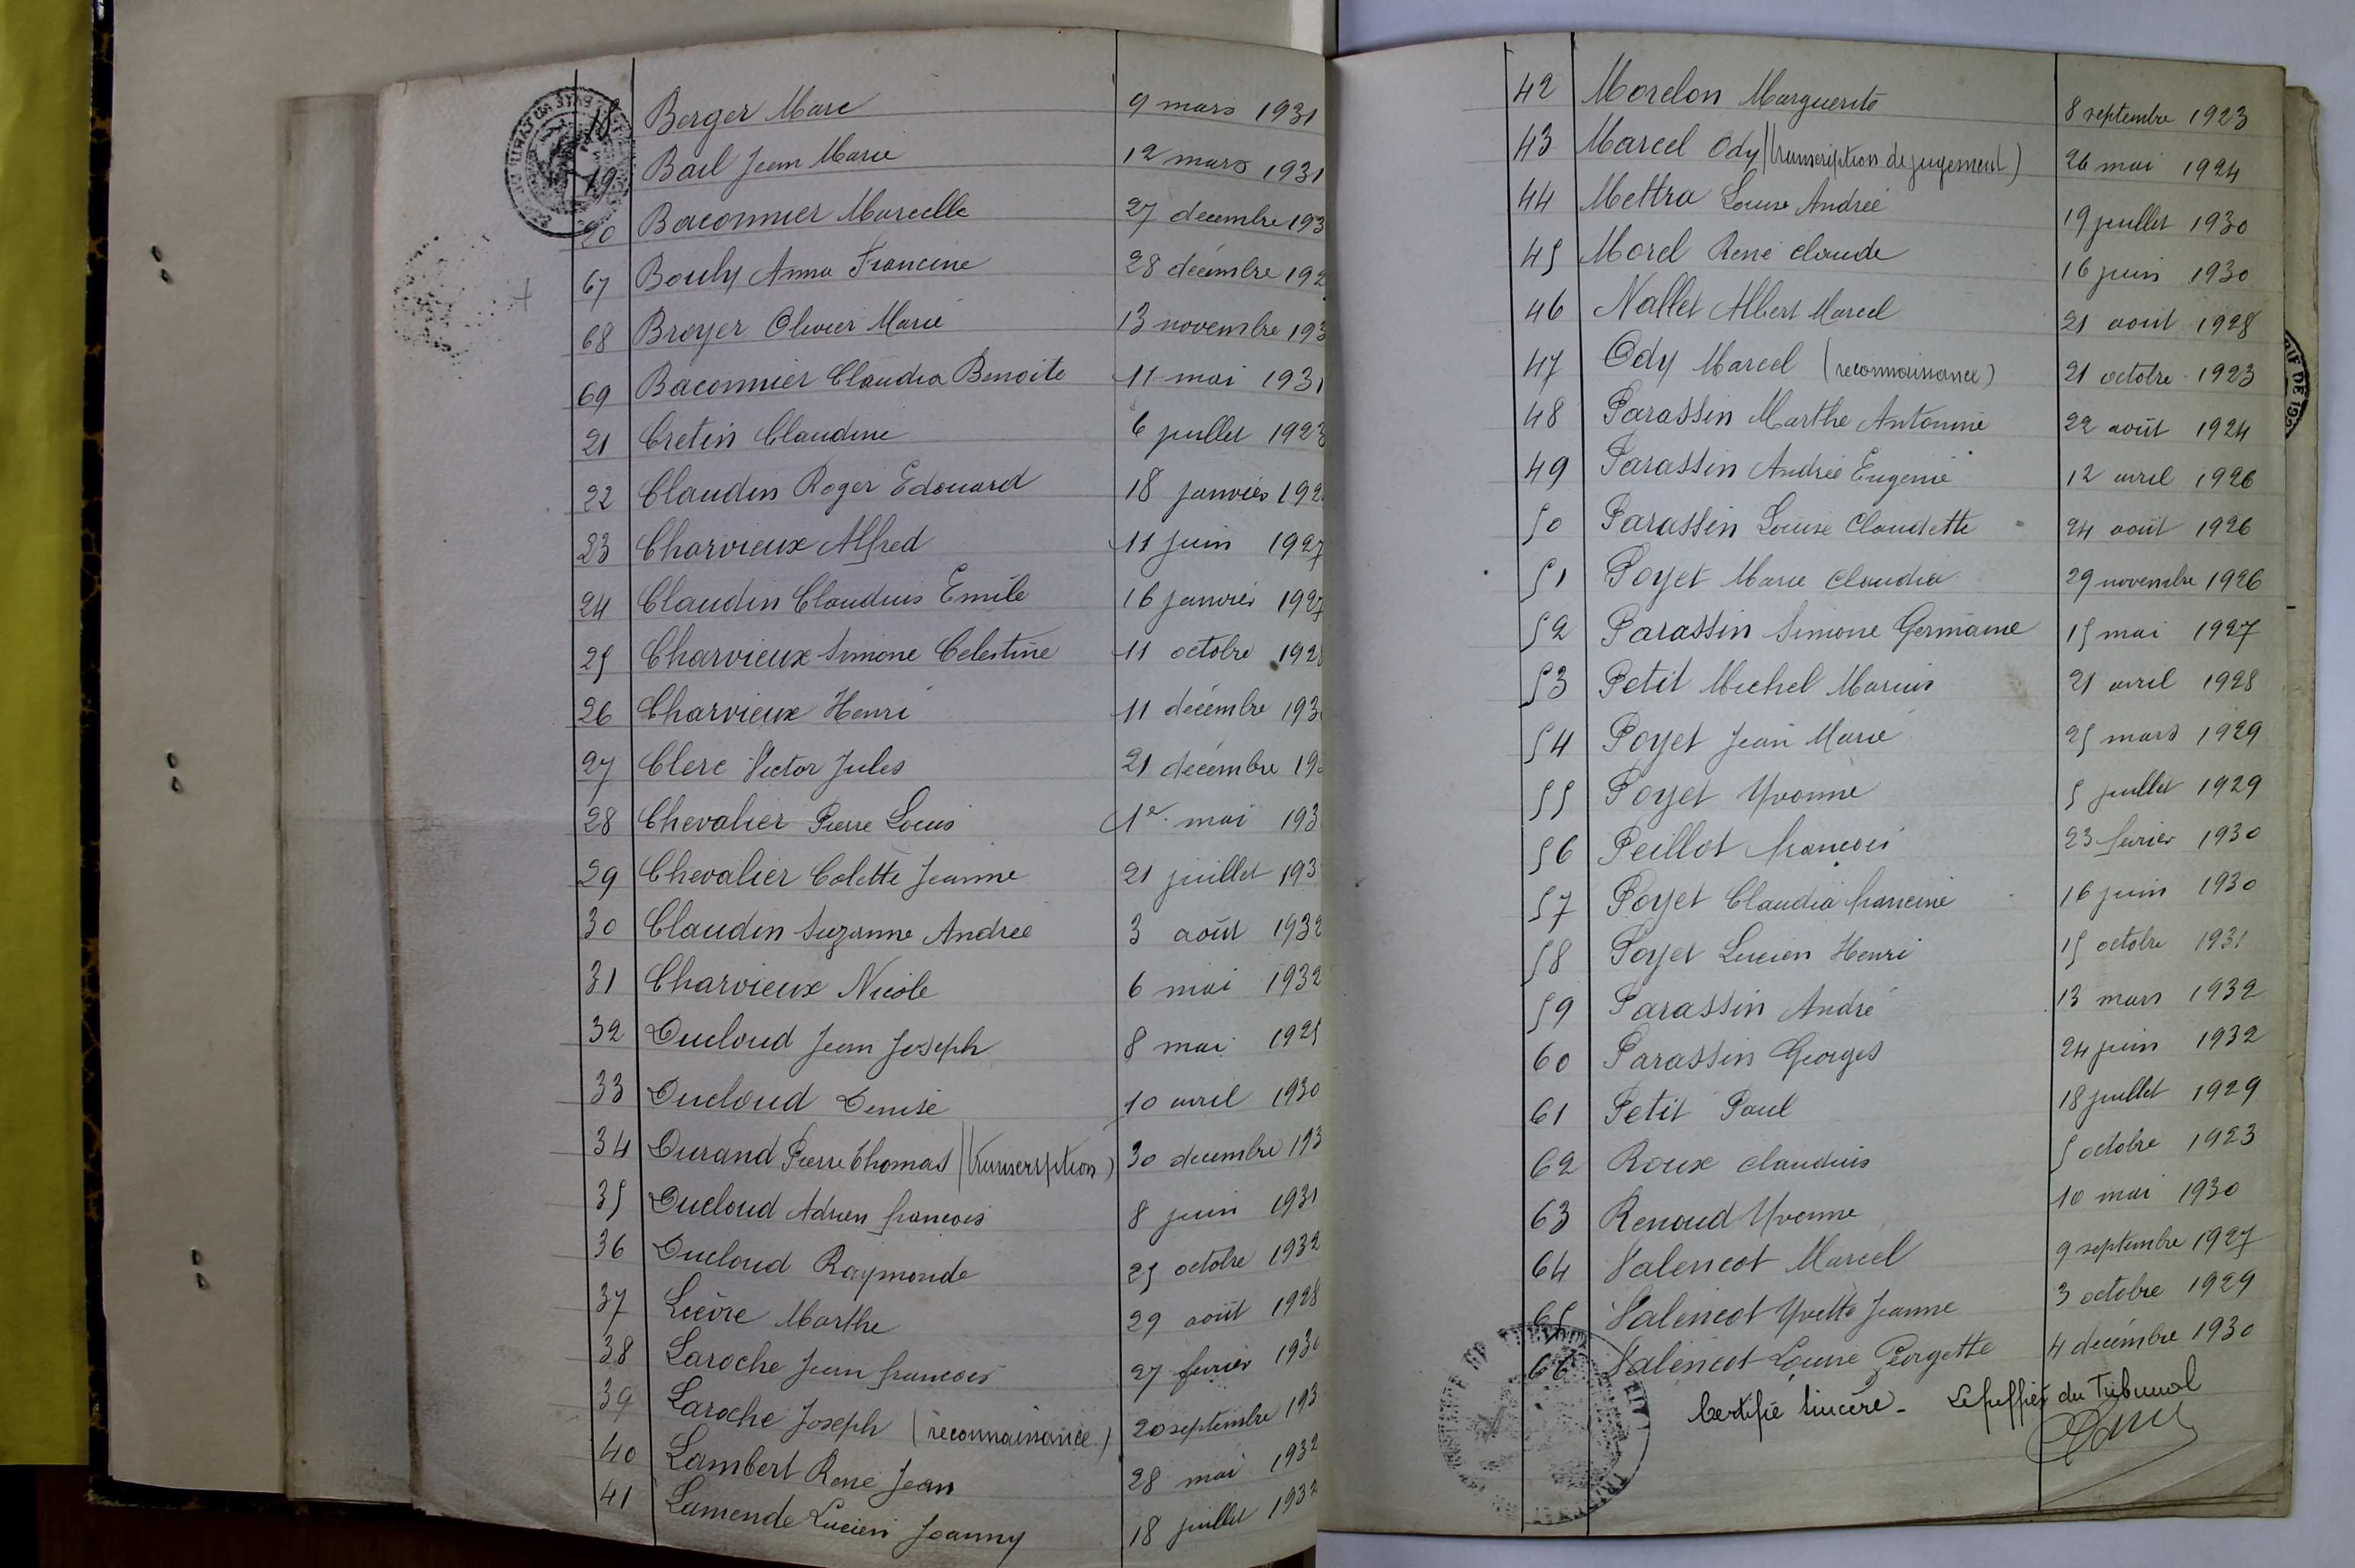 18 Berger Marc 9 mars 1931
19 Bail Jean Marie 12 mars 1931
20 Baconnier Marcelle 27 décembre 193
67 Bouly Anna Francine 28 décembre 192
68 Broyer Olivier Marie 13 novembre 193
69 Baconnier Claudia Benoite 11 mai 1931
21 Cretin Claudine 6 juillet 1923
22 Claudin Roger Edouard 18 janvier 192
23 Charvieux Alfred 11 juin 1927
24 Claudin Claudius Emile 16 janvier 1927
25 Charvieux Simone Celestine 11 octobre 1928
26 Charvieux Henri 11 décembre 193
27 Clerc Victor Jules 21 décembre 19
28 Chevalier Pierre Louis 1er mai 193
29 Chevalier Colette Jeanne 21 juillet 193
30 Claudin Suzanne Andrée 3 août 1932
31 Charvieux Nicole 6 mai 1932
32 Ducloud Jean Joseph 8 mai 1925
33 Ducloud Denise 10 avril 1930
34 Durand Pierre Thomas (transcription) 30 décembre 193
35 Ducloud Adrien françois 8 juin 1931
36 Ducloud Raymonde 25 octobre 1932
37 Lièvre Marthe 29 août 1928
38 Laroche Jean françois 27 fevrier 1930
39 Laroche Joseph (reconnaissance) 20 septembre 193
40 Lambert René Jean 28 mai 1932
41 Lamende Lucien Joanny 18 juillet 1932
42 Morelon Marguerite 8 septembre 1923
43 Marcel Ody (transcription de jugement) 26 mai 1924
44 Mettra Louise Andrée 19 juillet 1930
45 Morel René Claude 16 juin 1930
46 Nallet Albert Marcel 21 août 1928
47 Ody Marcel (reconnaissance) 21 octobre 1923
48 Parassin Marthe Antonine 22 août 1924
49 Parassin Andrée Eugenie 12 avril 1926
50 Parassin Louise Claudette 24 août 1926
51 Poyet Marie Claudia 29 novembre 1926
52 Parassin Simone Germaine 15 mai 1927
53 Petit Michel Marius 21 avril 1928
54 Poyet Jean Marie 25 mars 1929
55 Poyet Yvonne 5 juillet 1929
56 Peillot françois 23 fevrier 1930
57 Poyet Claudia francine 16 juin 1930
58 Poyet Lucien Henri 15 octobre 1931
59 Parassin André 13 mars 1932
60 Parassin Georges 24 juin 1932
61 Petit Paul 18 juillet 1929
62 Roux Claudius 5 octobre 1923
63 Renoud Yvonne 10 mai 1930
64 Valencot Marcel 9 septembre 1927
65 Valencot Yvette Jeanne 3 octobre 1929
66 Valencot Louise Georgette 4 décembre 1930
Certifié Sincère - Le Greffier du Tribunal